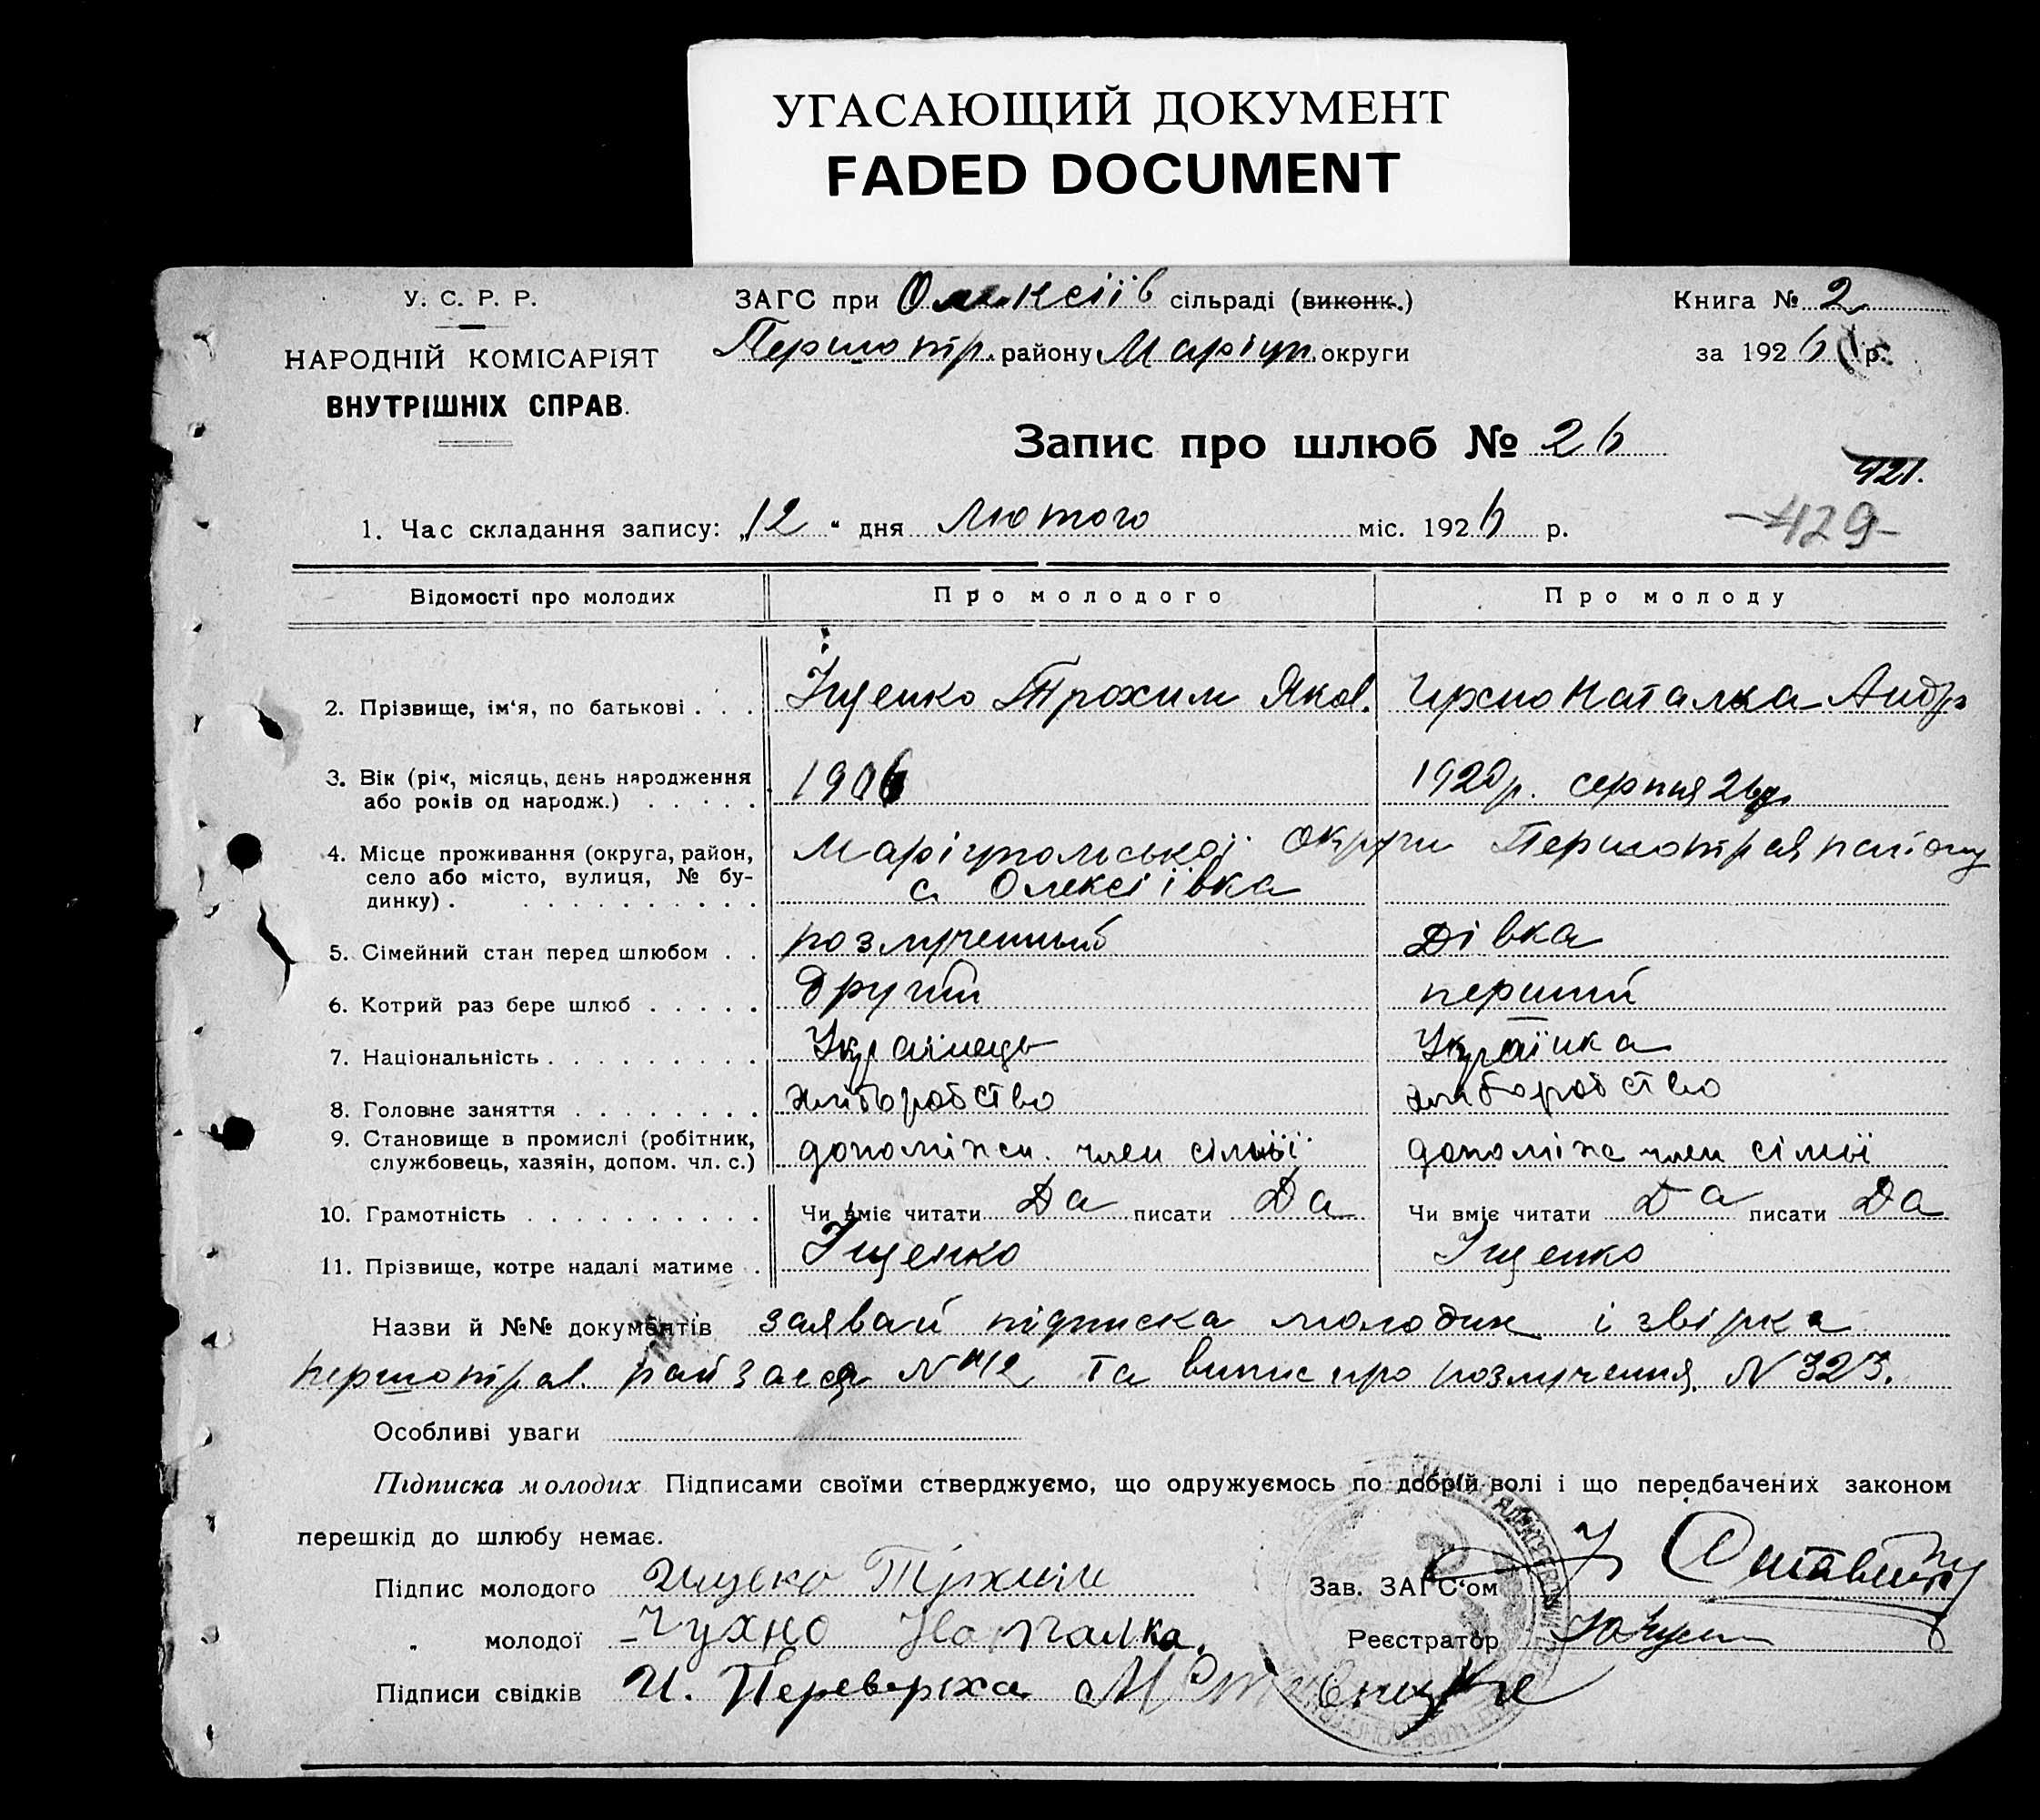 УГАСАЮЩИЙ ДОКУМЕНТ
FADED DOCUMENT
У. С. Р. Р.
НАРОДНІЙ КОМІСАРІЯТ
ВНУТРІШНІХ СПРАВ.
ЗАГС при Олексіїв сільраді (виконк.)
Першотр. району Маріуп. округи
Книга № 2
за 1926 р.
Запис про шлюб № 26
421.
-429-
1. Час складання запису: „12“ дня Лютого міс. 1926 р.
Відомості про молодих Про молодого Про молоду
2. Прізвище, ім'я, по батькові . . . Іщенко Трохим Яков. Чухно Наталка Андр
3. Вік (рік, місяць, день народження або років од народж.) . . . . . 1906 192 р. серпня 26 д.
4. Місце проживання (округа, район, село або місто, вулиця, № будинку) . . . . . . . . . . Маріупольської округи Першотрав району
с. Олексіївка
5. Сімейний стан перед шлюбом . . розлученный Дівка
6. Котрий раз бере шлюб . . . . . другий перший
7. Національність . . . . . . . . . Українець Українка
8. Головне заняття . . . . . . . . хліборобство хліборобство
9. Становище в промислі (робітник, службовець, хазяін, допом. чл. с.) допоміжн. член сімьї допоміж член сімьї
10. Грамотність . . . . . . . . . . Чи вміє читати Да писати Да Чи вміє читати Да писати Да
11. Прізвище, котре надалі матиме . Іщенко Іщенко
Назви й №№ документів заявай підписка молодих і звірка
першотрав. райзагса N 412 та випис про розлучення N 323.
Особливі уваги
Підписка молодих Підписами своїми стверджуємо, що одружуємось по добрій волі і що передбачених законом
перешкід до шлюбу немає.
Підпис молодого Ищеко Трохим
Зав. ЗАГС'ом
„ молодої Чухно Наталка.
Реєстратор
Підписи свідків И. Перевериха